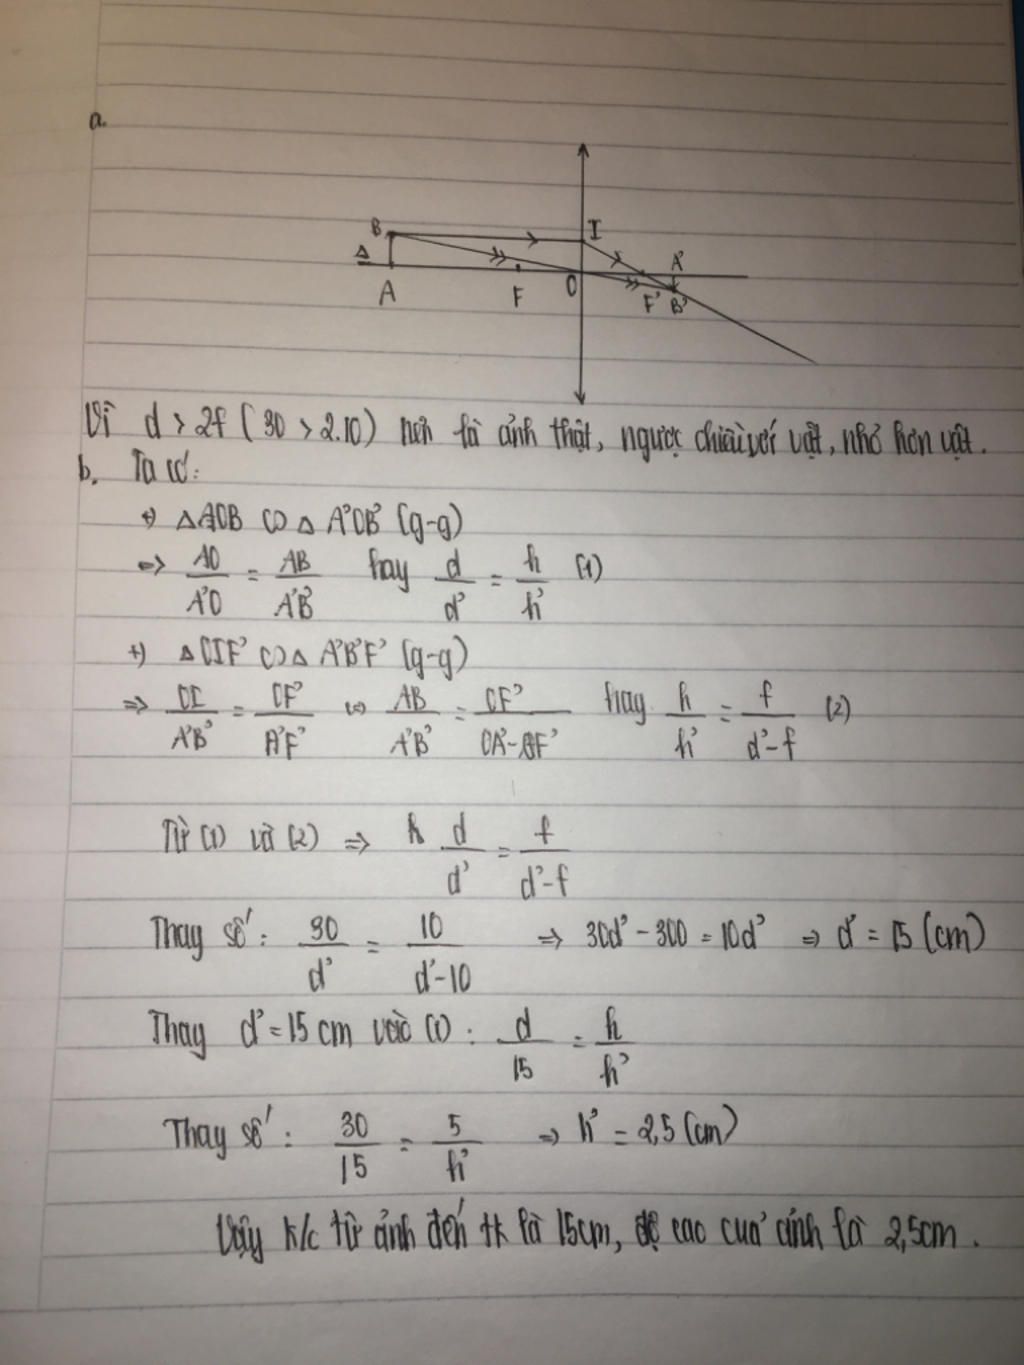 a.
B I
Δ A'
A F O F' B'
Vì d > 2f ( 30 > 2.10 ) nên là ảnh thật, ngược chiều với vật, nhỏ hơn vật.
b. Ta có:
+) ΔAOB ∽ Δ A'OB' (g-g)
=> AO/A'O = AB/A'B' hay d/d' = h/h' (1)
+) ΔOIF' ∽ Δ A'B'F' (g-g)
=> OI/A'B' = OF'/A'F' <=> AB/A'B' = OF'/OA'-OF' hay h/h' = f/d'-f (2)
Từ (1) và (2) => d/d' = f/d'-f
Thay số : 30/d' = 10/d'-10 => 30d' - 300 = 10d' => d' = 15 (cm)
Thay d' = 15 cm vào (1) : d/15 = h/h'
Thay số : 30/15 = 5/h' => h' = 2,5 (cm)
Vậy k/c từ ảnh đến tk là 15cm, độ cao của ảnh là 2,5cm.